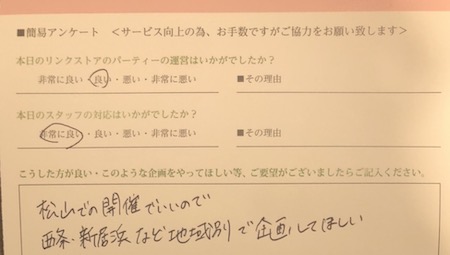 ■簡易アンケート <サービス向上の為、お手数ですがご協力をお願い致します>
本日のリンクストアのパーティーの運営はいかがでしたか?
非常に良い・良い・悪い・非常に悪い ■その理由
本日のスタッフの対応はいかがでしたか?
非常に良い・良い・悪い・非常に悪い ■その理由
こうした方が良い・このような企画をやってほしい等、ご要望がございましたらご記入ください。
松山での開催でいいので
西条・新居浜など地域別で企画してほしい